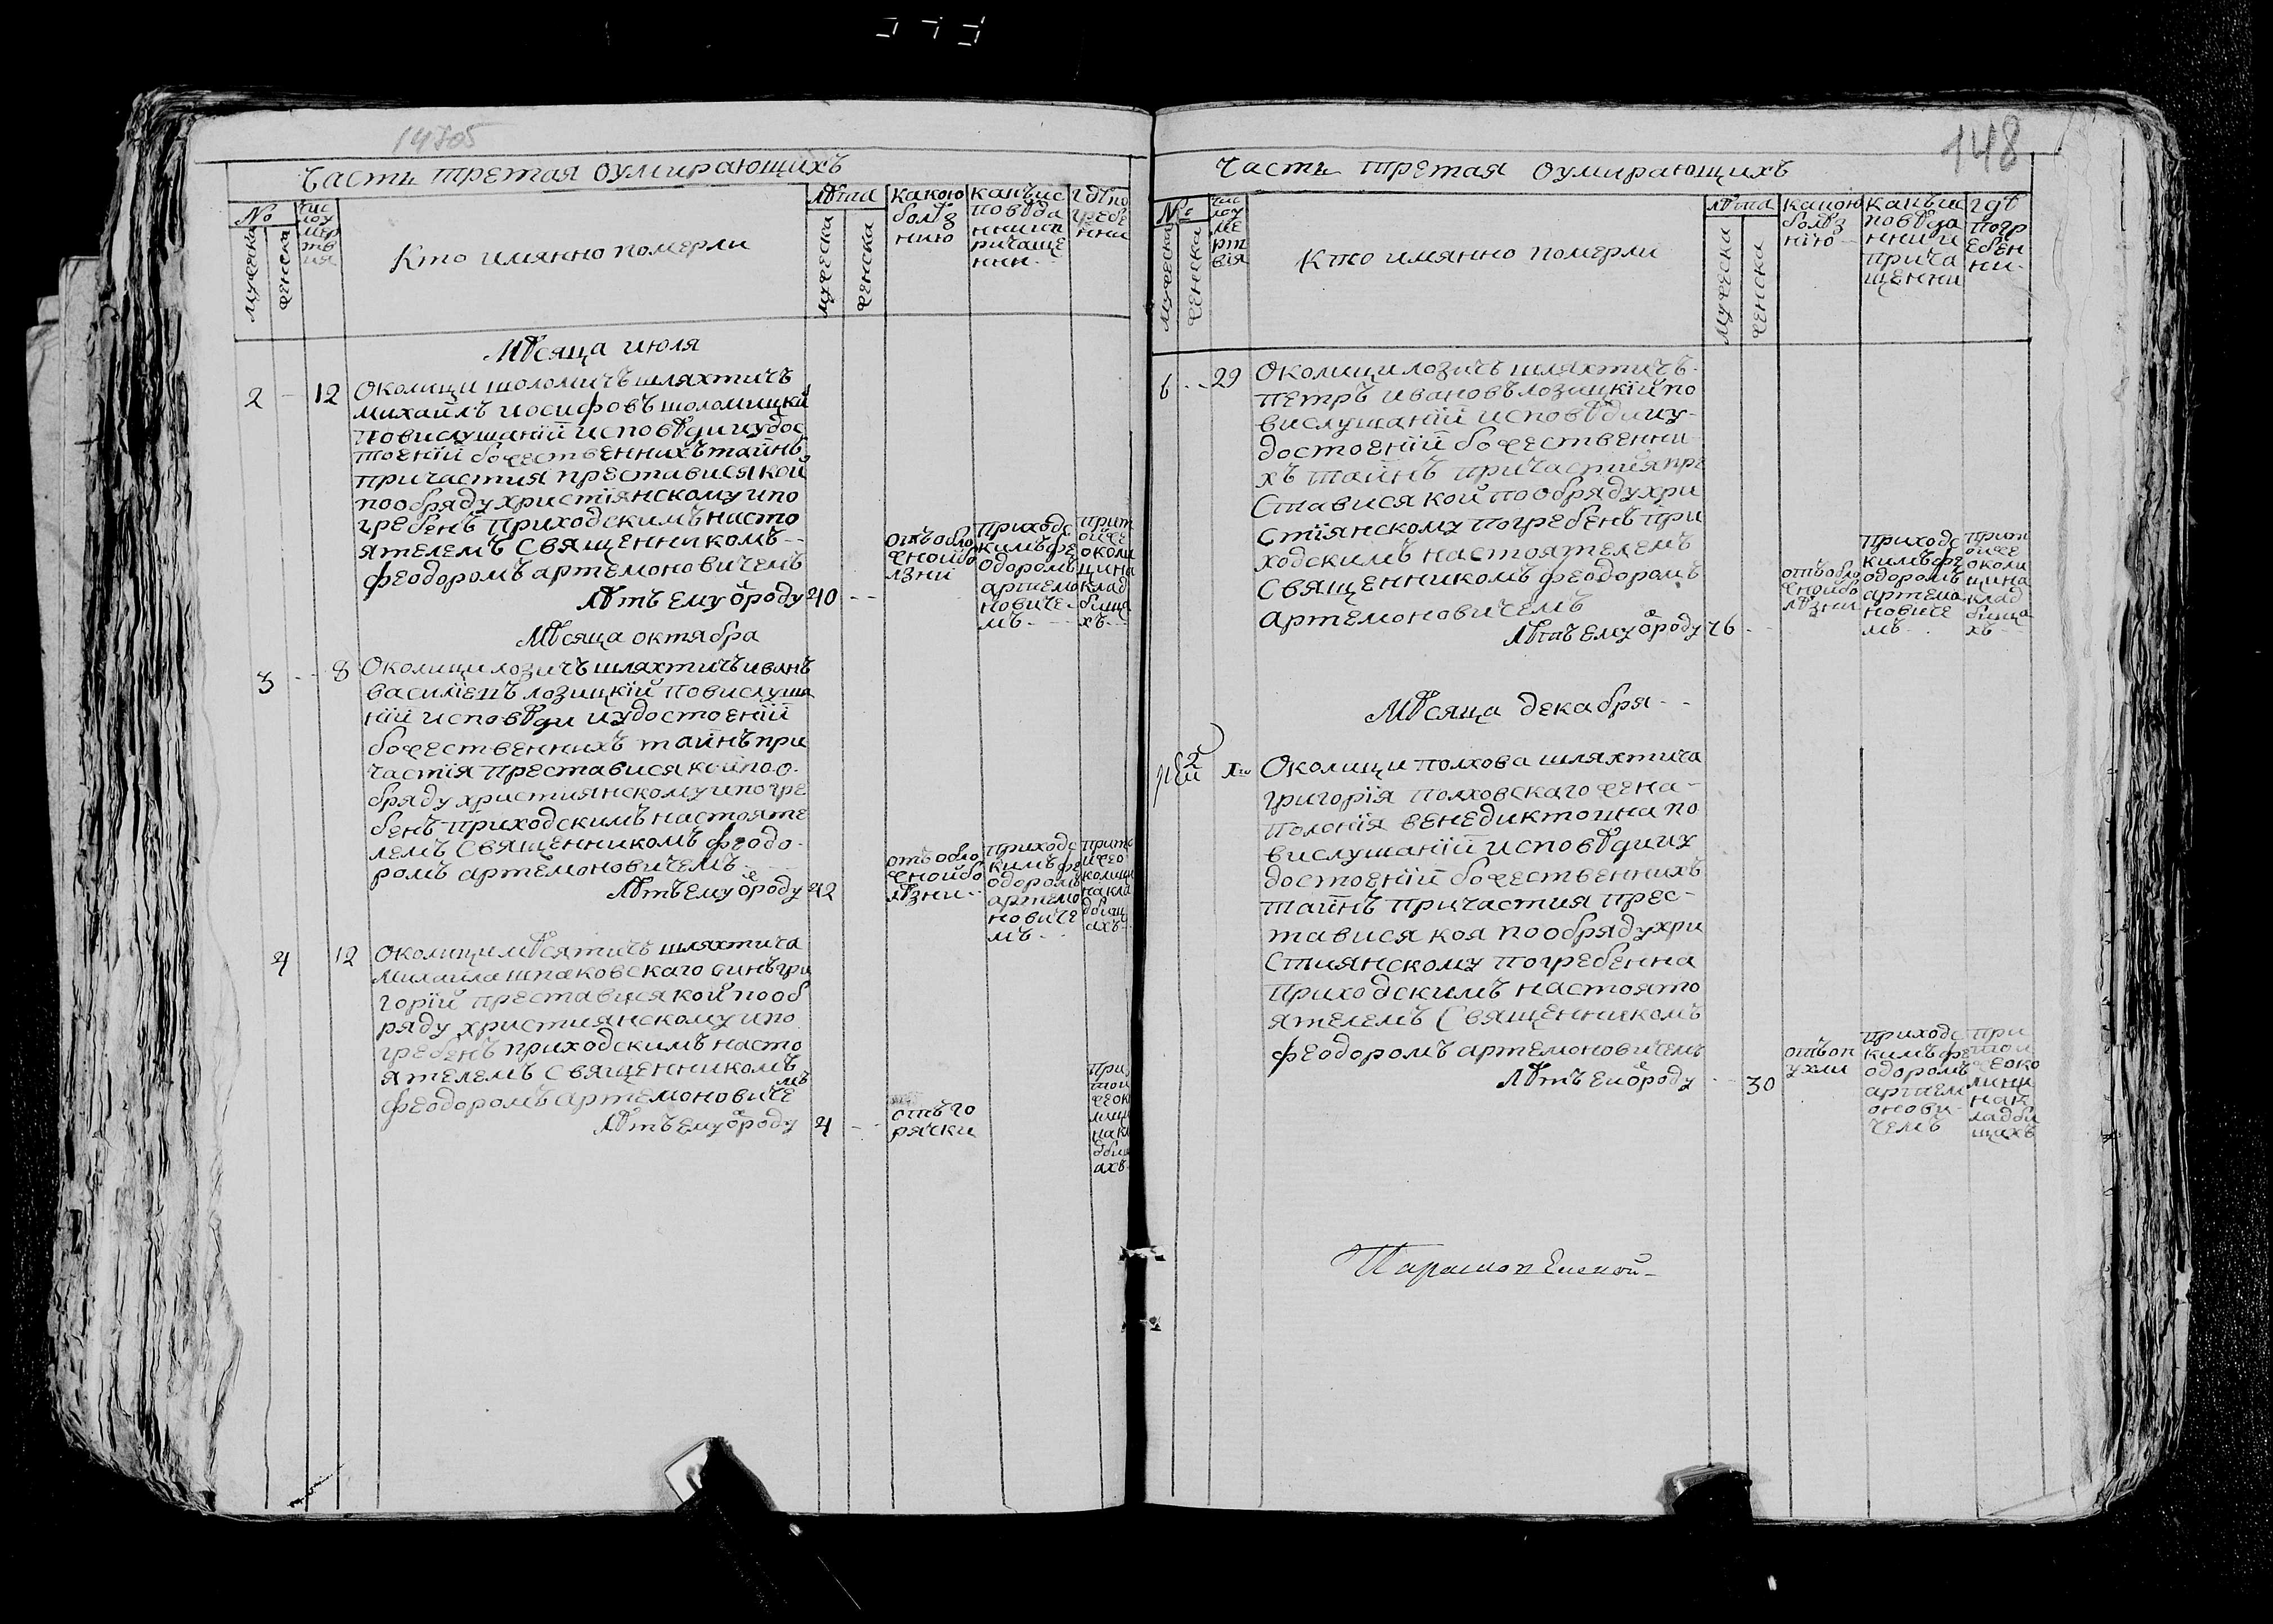 14705
Часть третая оумирающихъ
№
мужеска
женска
чис
лоу
мер
тв
ия
Кто имянно померли
лѣта
мужеска
женска
какою
болѣз
нию
канъис
повѣда
нии ип
ричаще
нии
гдѣпо
гребе
нни
Мѣсяца июля
2 - 12
Околици шоломичъ шляхтичъ
михаилъ иосифовъ шоломицкий
повислушаній исповѣди иудос
тоеній божественнихъ тайнъ
причастия преставися кой
пообряду христіянскому ипо
гребенъ приходскимъ насто
ятелемъ Священникомъ --
феодоромъ артемоновичемъ
Лѣтъ ему ѿроду 40 --
отъ обло
жнойбо
лзні
приходс
кимъфе
одоромъ
артемо
новиче
мъ
прит
ойже
околи
цина
клад
бища
хъ
Мѣсяца октября
3 -- 8
Околици лозичъ шляхтичъ иванъ
василіевъ лозицкій повислуша
ній исповѣди иудостоеній
божественнихъ тайнъ при
частія преставися кой по о
бряду християнскому ипогре
бенъ приходскимъ настояте
лемъ Священникомъ феодо-
ромъ артемоновичемъ
Лѣтъ ему ѿроду 42
отъ обло
жнойбо
лѣзни
приходс
кимъ фе
одоромъ
артемо
новиче
мъ
прито
йжео
колици
накла
дбищ
ахъ
4 12
Околици мѣсятичъ шляхтича
михаила шпаковскаго синъ гри
горій преставися кой пооб
ряду християнскому ипо
гребенъ приходскимъ насто
ятелемъ Священникомъ
феодоромъ артемоновиче
мъ
Лѣтъ ему ѿроду 4 --
отъ го
рячки
при
той
жеок
лици
накл
дбищ
ахъ
148
Часть третая оумирающихъ
№
мужеска
женска
чис
лоу
ме
рт
вія
Кто имянно померли
лѣта
мужеска
женска
какою
болѣз
нію
канъис
повѣда
нни и
прича
щенни
гдѣ
погр
ебен
ни
6 -- 29
Околици лозичъ шляхтичъ
петръ ивановъ лозицкій по
вислушаній исповѣди иу-
достоеній божественни
хъ тайнъ причастія пре
ставися кой пообряду хри
стіянскому погребенъ при
ходскимъ настоятелемъ
Священникомъ феодоромъ
артемоновичемъ
Лѣтъ ему ѿроду 76 --
отъ обло
жнойбо
лѣзни
приходс
кимъфе
одоромъ
артемо
новиче
мъ
прит
ойже
околи
цина
клад
бища
хъ
Мѣсяца декабря --
2
Околици полхова шляхтича
григорія полховскаго жена-
полонія венедиктовна по
вислушаній исповѣди иу
достоеній божественнихъ
тайнъ причастия прес-
тавися коя пообряду хри
стиянскому погребенна
приходскимъ настоято
ятелемъ Священникомъ
феодоромъ артемоновичемъ
Лѣтъ ей ѿроду -- 30
отъ оп
ухли
приходс
кимъ фе
одоромъ
артем
онови
чемъ
при
той
жеоко
лици
нак
ладби
щихъ